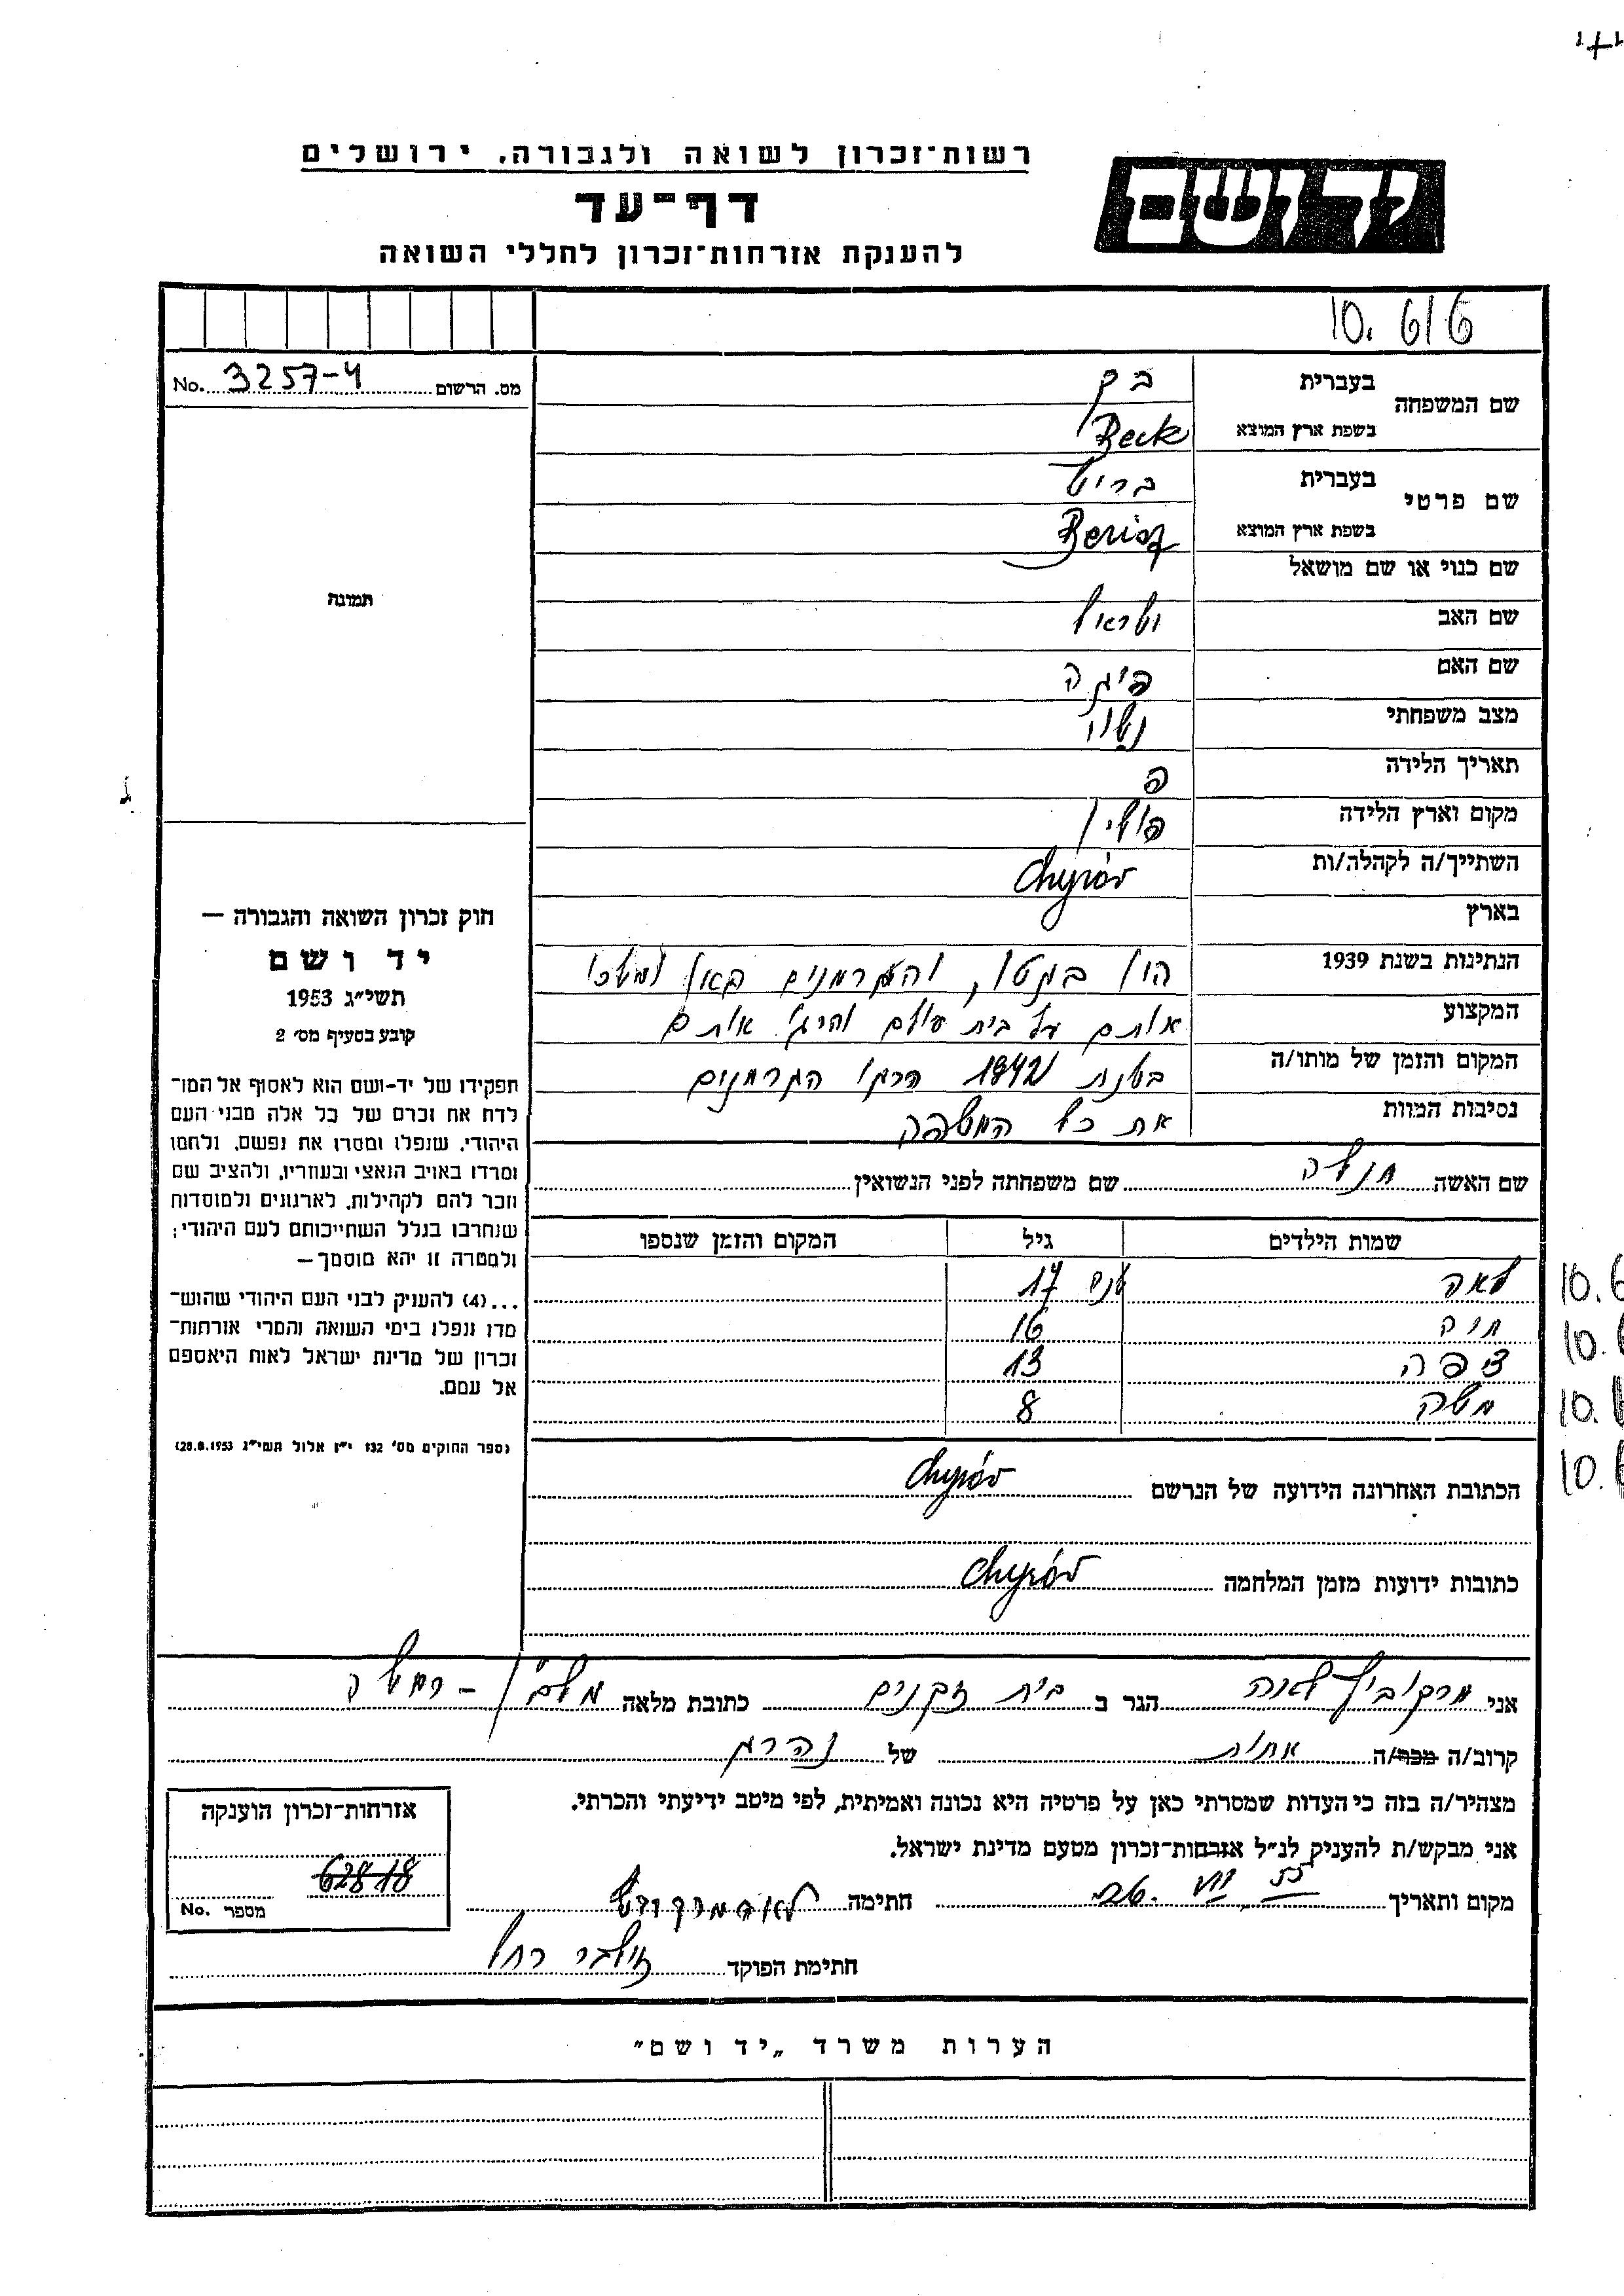 רשות־זכרון לשואה ולגבורה, ירושלים
דף־עד
להענקת אזרחות־זכרון לחללי השואה
יד ושם
10. 616
מס. הרשום 3257-4 No.
תמונה
שם המשפחה
בעברית בק
בשפת ארץ המוצא Beck
שם פרטי
בעברית בריש
בשפת ארץ המוצא
שם כנוי או שם מושאל
שם האב ישראל
שם האם
מצב משפחתי נשוי
תאריך הלידה
מקום וארץ הלידה פולין
השתייך/ה לקהלה/ות Chyrów
בארץ
הנתינות בשנת 1939 היו בגטו, והגרמנים באו ולקחו
המקצוע אותם על בית עולם והרגו אותם
המקום והזמן של מותו/ה בשנת 1942 הרגו הגרמנים
נסיבות המוות את כל המשפחה
שם האשה שם משפחתה לפני הנשואין
שמות הילדים גיל המקום והזמן שנספו
לאה 17
חיה 16
ציפה 13
משה 8
הכתובת האחרונה הידועה של הנרשם Chyrów
כתובות ידועות מזמן המלחמה Chyrów
חוק זכרון השואה והגבורה —
יד ושם
תשי״ג 1953
קובע בסעיף מס׳ 2
תפקידו של יד-ושם הוא לאסוף אל המו־
לדת את זכרם של כל אלה מבני העם
היהודי, שנפלו ומסרו את נפשם, נלחמו
ומרדו באויב הנאצי ובעוזריו, ולהציב שם
וזכר להם לקהילות, לארגונים ולמוסדות
שנחרבו בגלל השתייכותם לעם היהודי;
ולמטרה זו יהא מוסמך—
...(4) להעניק לבני העם היהודי שהוש־
מדו ונפלו בימי השואה והמרי אזרחות־
זכרון של מדינת ישראל לאות היאספם
אל עמם.
(ספר החוקים מס׳ 132 י״ז אלול תשי״ג 28.8.1953)
אני מרקוביץ לאה הגר ב בית זקנים כתובת מלאה
קרוב/ה מכר/ה אחות של נהרג
מצהיר/ה בזה כי העדות שמסרתי כאן על פרטיה היא נכונה ואמיתית, לפי מיטב ידיעתי והכרתי.
אני מבקש/ת להעניק לנ״ל אזרחות־זכרון מטעם מדינת ישראל.
מקום ותאריך חתימה
חתימת הפוקד זילבר רחל
אזרחות־זכרון הוענקה
62818
מספר No.
הערות משרד „יד ושם״